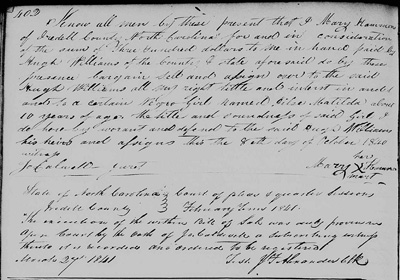 402
Know all men by these present that I Mary Hammons
of Iredell County North Carolina for and in consideration
of the sum of Three hundred dollars to me in hand paid by
Hugh Williams of the County & State afore said do by these
presence bargain sell and assign over to the said
Hugh Williams all my right title and interest in and
unto a certain Negro Girl named Matilda about
10 years of age the title and soundness of said Girl I
do here by warant and defend to the said Hugh Williams
his heirs and assigns this the day of October 1840
witness her
Mary X Hammons
Jurat mark
State of North Carolina } Court of pleas & quarter Sessions
Iredell County } February Term 1841
The execution of the within Bill of Sale was duly proven in
open Court by the oath of a subscribing witness
thereto it is recorded and ordered to be registered
March 27th 1841 Alexander Clk